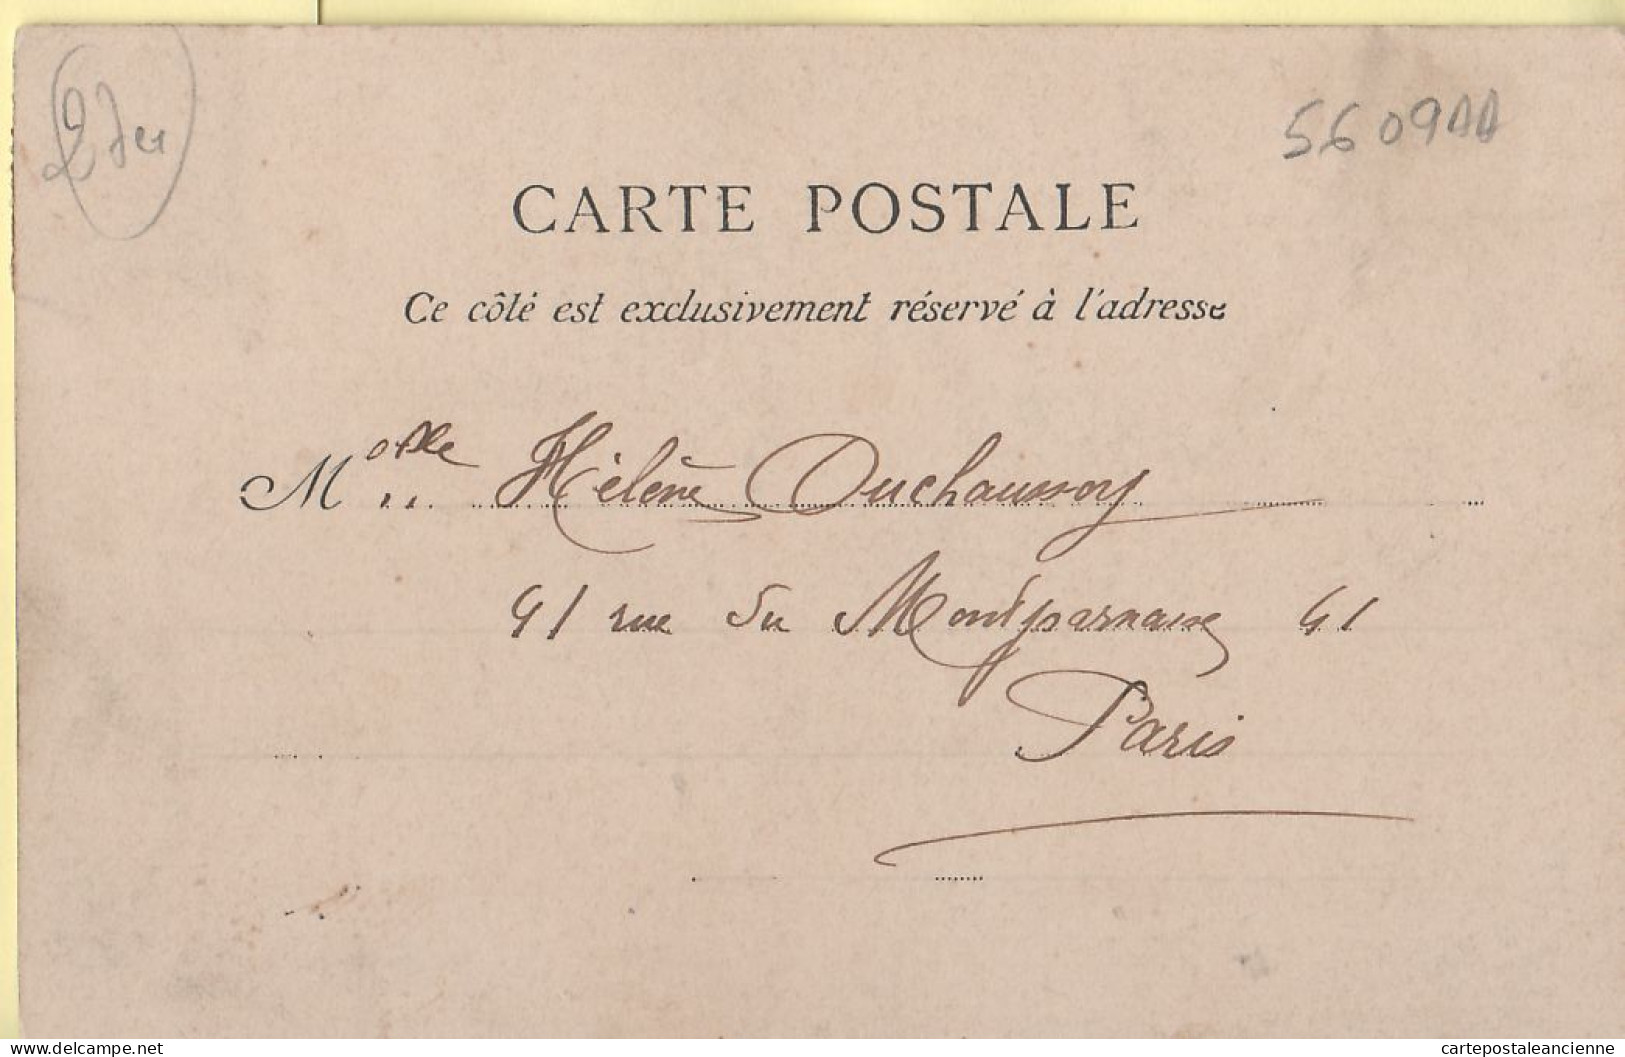 5609AA
CARTE POSTALE
Ce côté est exclusivement réservé à l'adresse
Melle Hélène Duchaussoy
41 rue du Montparnasse 41
Paris
delcampe.net
cartepostaleancienne